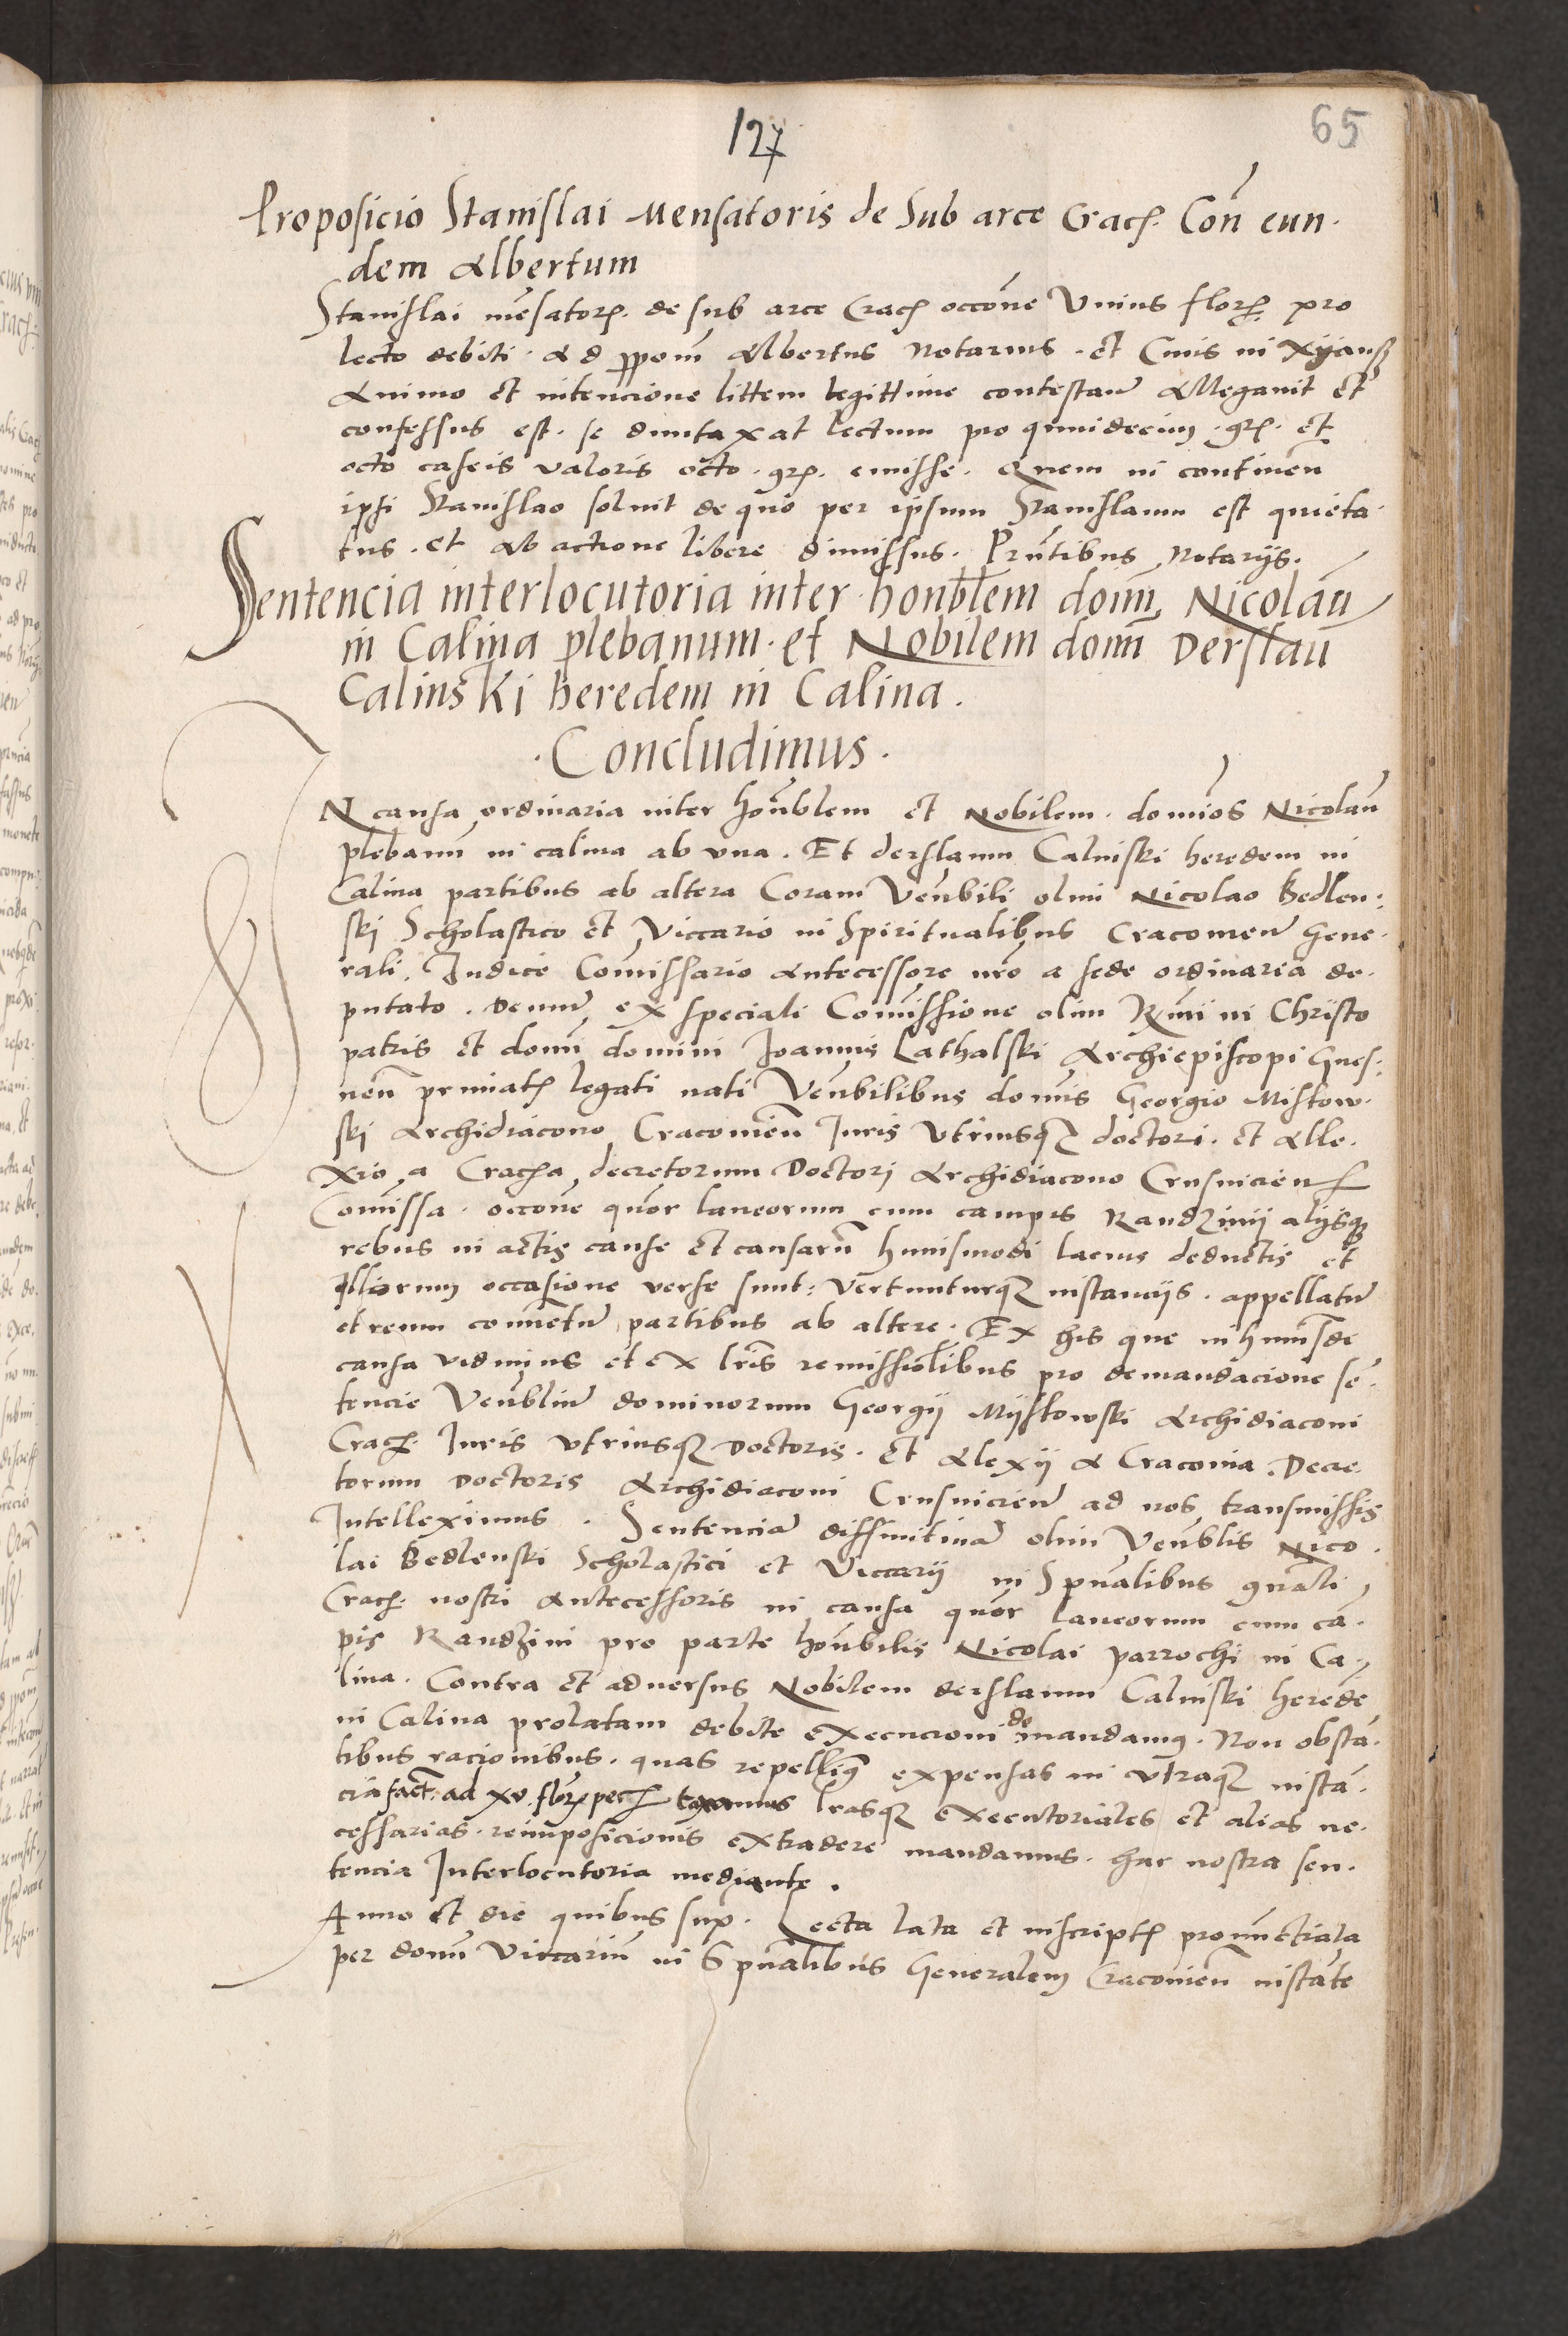 127
65
Proposicio Stanislai Mensatoris de Sub arce Crac. Con eun.
dem Albertum
Stanislai mēsator. de sub arce Crac occōne Unius flor. pro
lecto debiti. Ad ꝓpōm Albertus Notarius. et Civis in
Animo et intencione littem legittime contestan̄ Allegavit et
confessus est. se duntaxat lectum pro quindecim. gr. et
octo caseis valoris octo. gr. emisse. Quem in continen̄
ipsi Stanislao solvit de quo per ipsum Stanislaum est quieta
tus. et ab actione libere dimissus. Prn̄tibus Notariis.
Sentencia interlocutoria inter honblem doīm Nicolaū
in Calina plebanum. et Nobilem domī Derslaū
Calinski heredem in Calina.
.Concludimus.
IN causa ordinaria inter honblem et Nobilem. dominos Nicolaū
plebanū in calina ab una. Et derslaum Calinski heredem in
Calina partibus ab altera Coram Venbili olim Nicolao Bedlen:
ski Scholastico et Viccario in Spiritualibus Cracomen̄ Gene.
rali. Iudice Comissario Antecessore nr̄o a sede ordinaria de.
putato. Demum ex speciali Comissione olim Rmi in Christo
patris et domī domini Ioannis Lathalski Archiepiscopi Gnes:
nen̄ primat legati nati Venbilibus domīs Georgio Mistow.
ski Archidiacono Cracovien̄ Iuris Utriusq doctori. et Alle.
xio a Crac͡ha decretorum Doctori Archidiacono Crusvicien̄
Comissa. occōne quōr laneorum cum campis Randzinij alijsq
rebus in actis cause et causarū huiusmodi lacius deductis et
Illorum occasione verse sunt: vertunturq instancijs. appellatū
et reum conventū partibus ab altere. Ex his que in huiusde
causa vidimus et ex lr̄is remissiolibus pro demandacione sē.
tencie Venbliū dominorum Georgij Myskowski Archidiaconi
Crac. Iuris utriusq Doctoris. Et Alexij a Cracovia. Decre.
torum Doctoris Archidiaconi Crusvicien̄ ad nos transmissis
Intelleximus. Sentenciā diffinitivā olim Venblis Nico.
lai Bedlenski Scholastici et Viccarij in Spūalibus gnāli
Crac. nostri Antecessoris in causa quōr laneorum cum cā.
pis Randzini pro parte honbilis Nicolai parrochi in Ca
lina. Contra et adversus Nobilem derslaum Calinski heredē
in Calina prolatam debite execucioni demandamus. Non obstā.
tibus racionibus. quas repellimus expensas in utraq instā.
cia fact. ad xv. flor pec taxamus lrasq executoriales et alias ne.
cessarias. reimposicionis extradere mandamus. hac nostra sen.
tencia Interlocutoria mediante.
Anno et die quibus supra. Lecta lata et inscript pronuncciata
per domī Viccariū in Spūalibus Generalem Cracovien̄ instāte